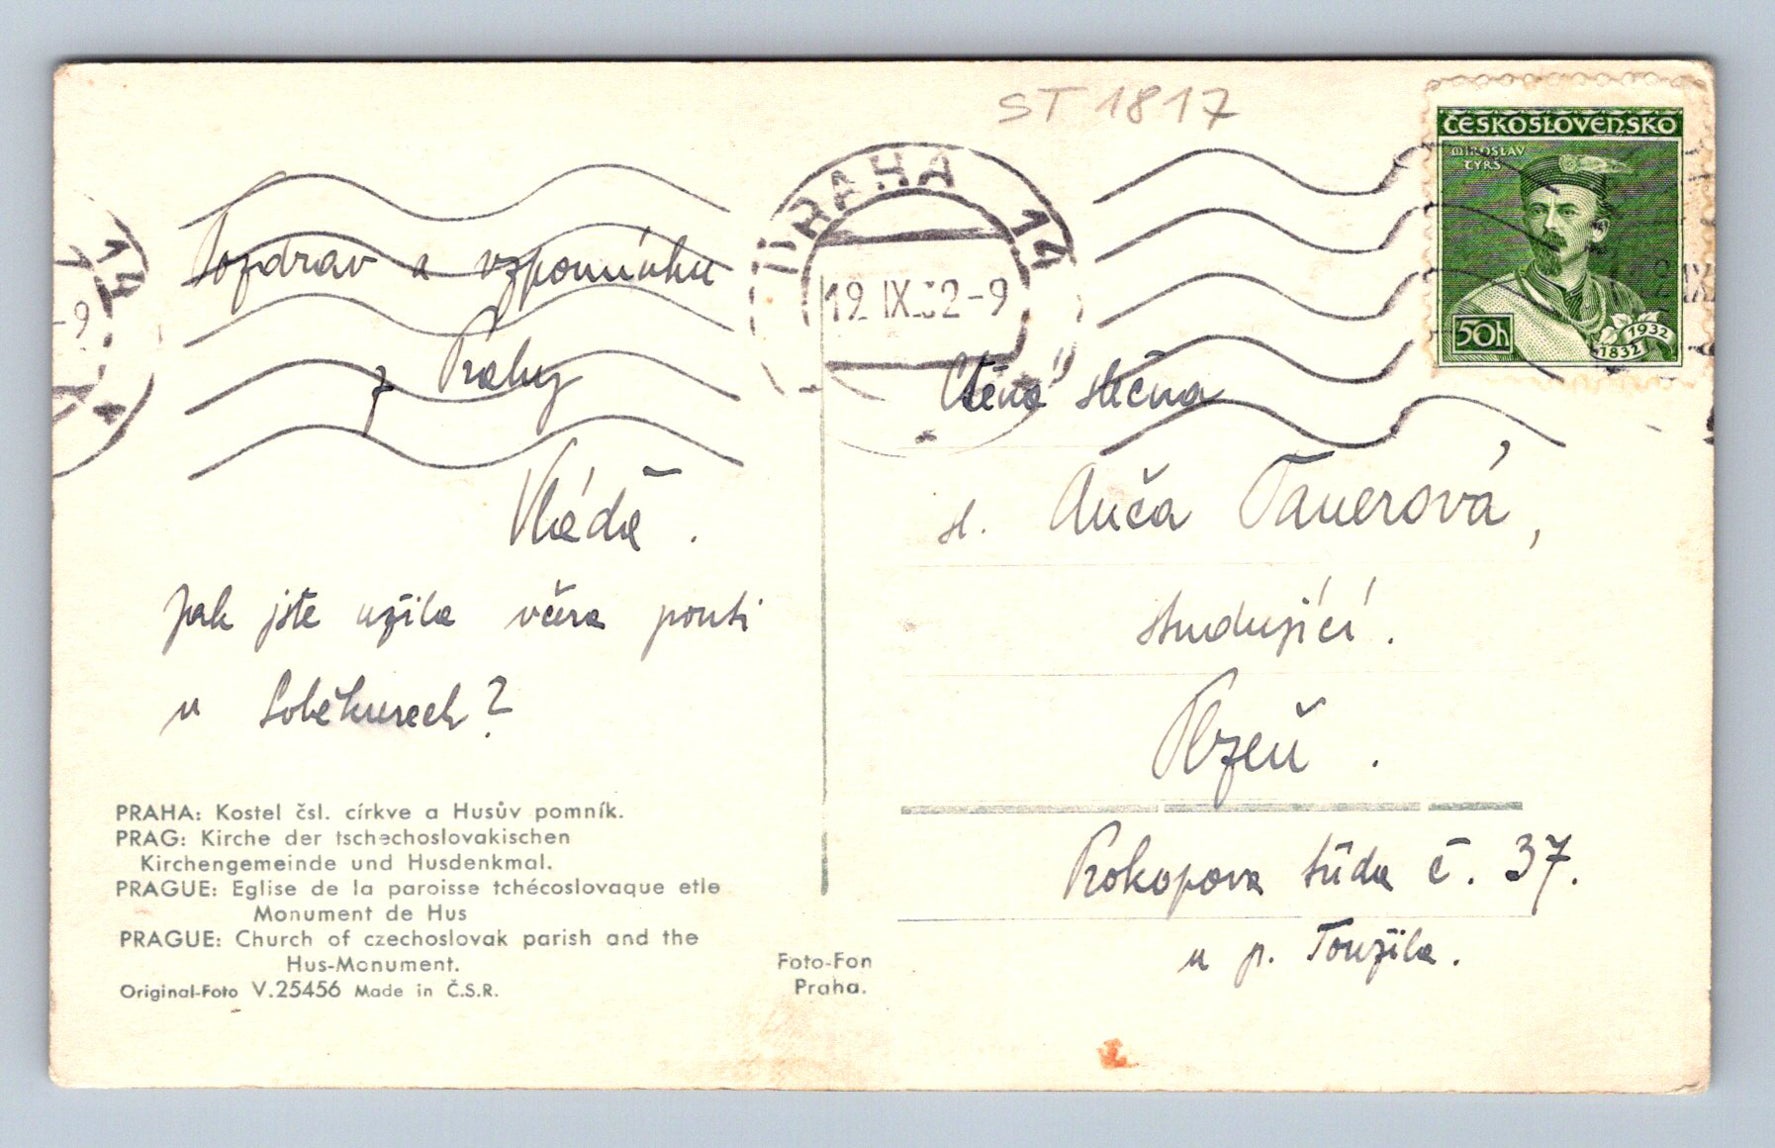 ST 1817
ČESKOSLOVENSKO
MIROSLAV
TYRŠ
50h
1832 1932
PRAHA 14
19.IX.32-9
14
-9
Pozdrav a vzpomínku
z Prahy
Vláďa.
Jak jste užila včera pouti
u Soběkurech?
Ctěná slečna
sl. Anča Tauerová,
studující.
Plzeň.
Prokopova třída č. 37.
u p. Toužila.
PRAHA: Kostel čsl. církve a Husův pomník.
PRAG: Kirche der tschechoslovakischen
Kirchengemeinde und Husdenkmal.
PRAGUE: Eglise de la paroisse tchécoslovaque etle
Monument de Hus
PRAGUE: Church of czechoslovak parish and the
Hus-Monument.
Original-Foto V.25456 Made in Č.S.R.
Foto-Fon
Praha.